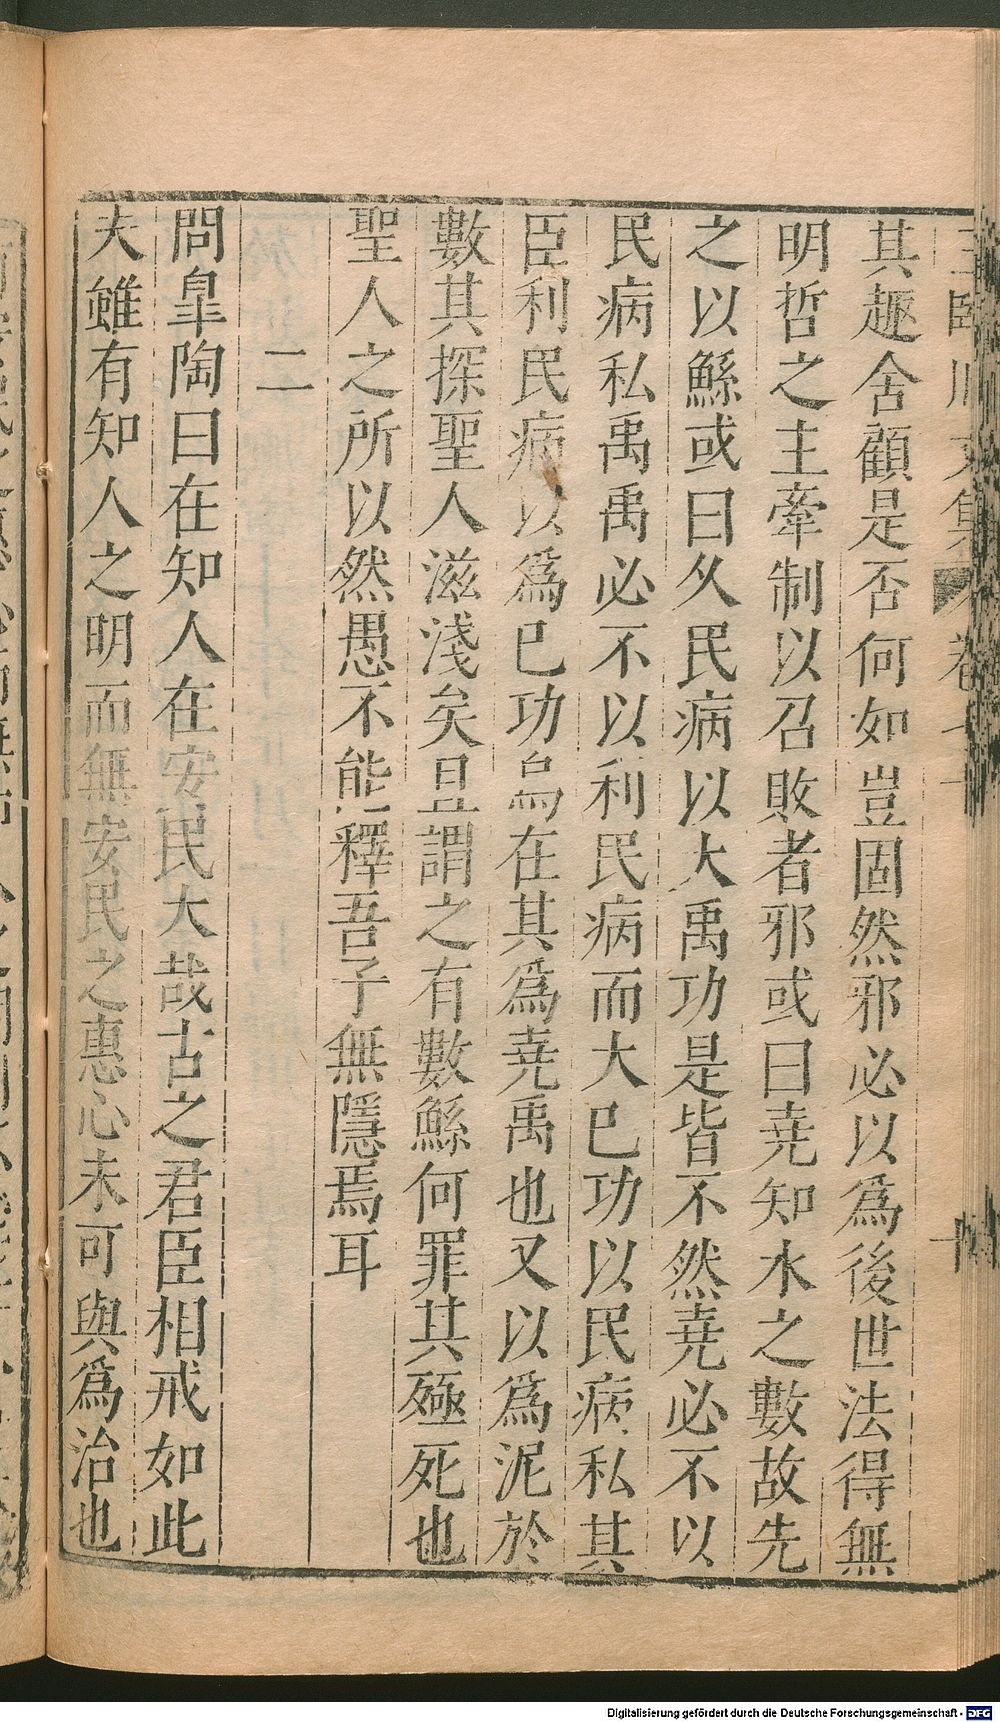 其趣舍顧是否何如豈固然邪必以爲後世法得無
明哲之主牽制以召敗者邪或曰堯知水之數故先
之以鯀或曰久民病以大禹功是皆不然堯必不以
民病私禹禹必不以利民病而大巳功以民病私其
臣利民病以爲巳功烏在其爲堯禹也又以爲泥於
數其探聖人滋淺矣且謂之有數鯀何罪其殛死也
聖人之所以然愚不能釋吾子無隱焉耳
二
問皐陶曰在知人在安民大哉古之君臣相戒如此
夫雖有知人之明而無安民之惠心未可與爲治也
Digitalisierung gefördert durch die Deutsche Forschungsgemeinschaft - DFG